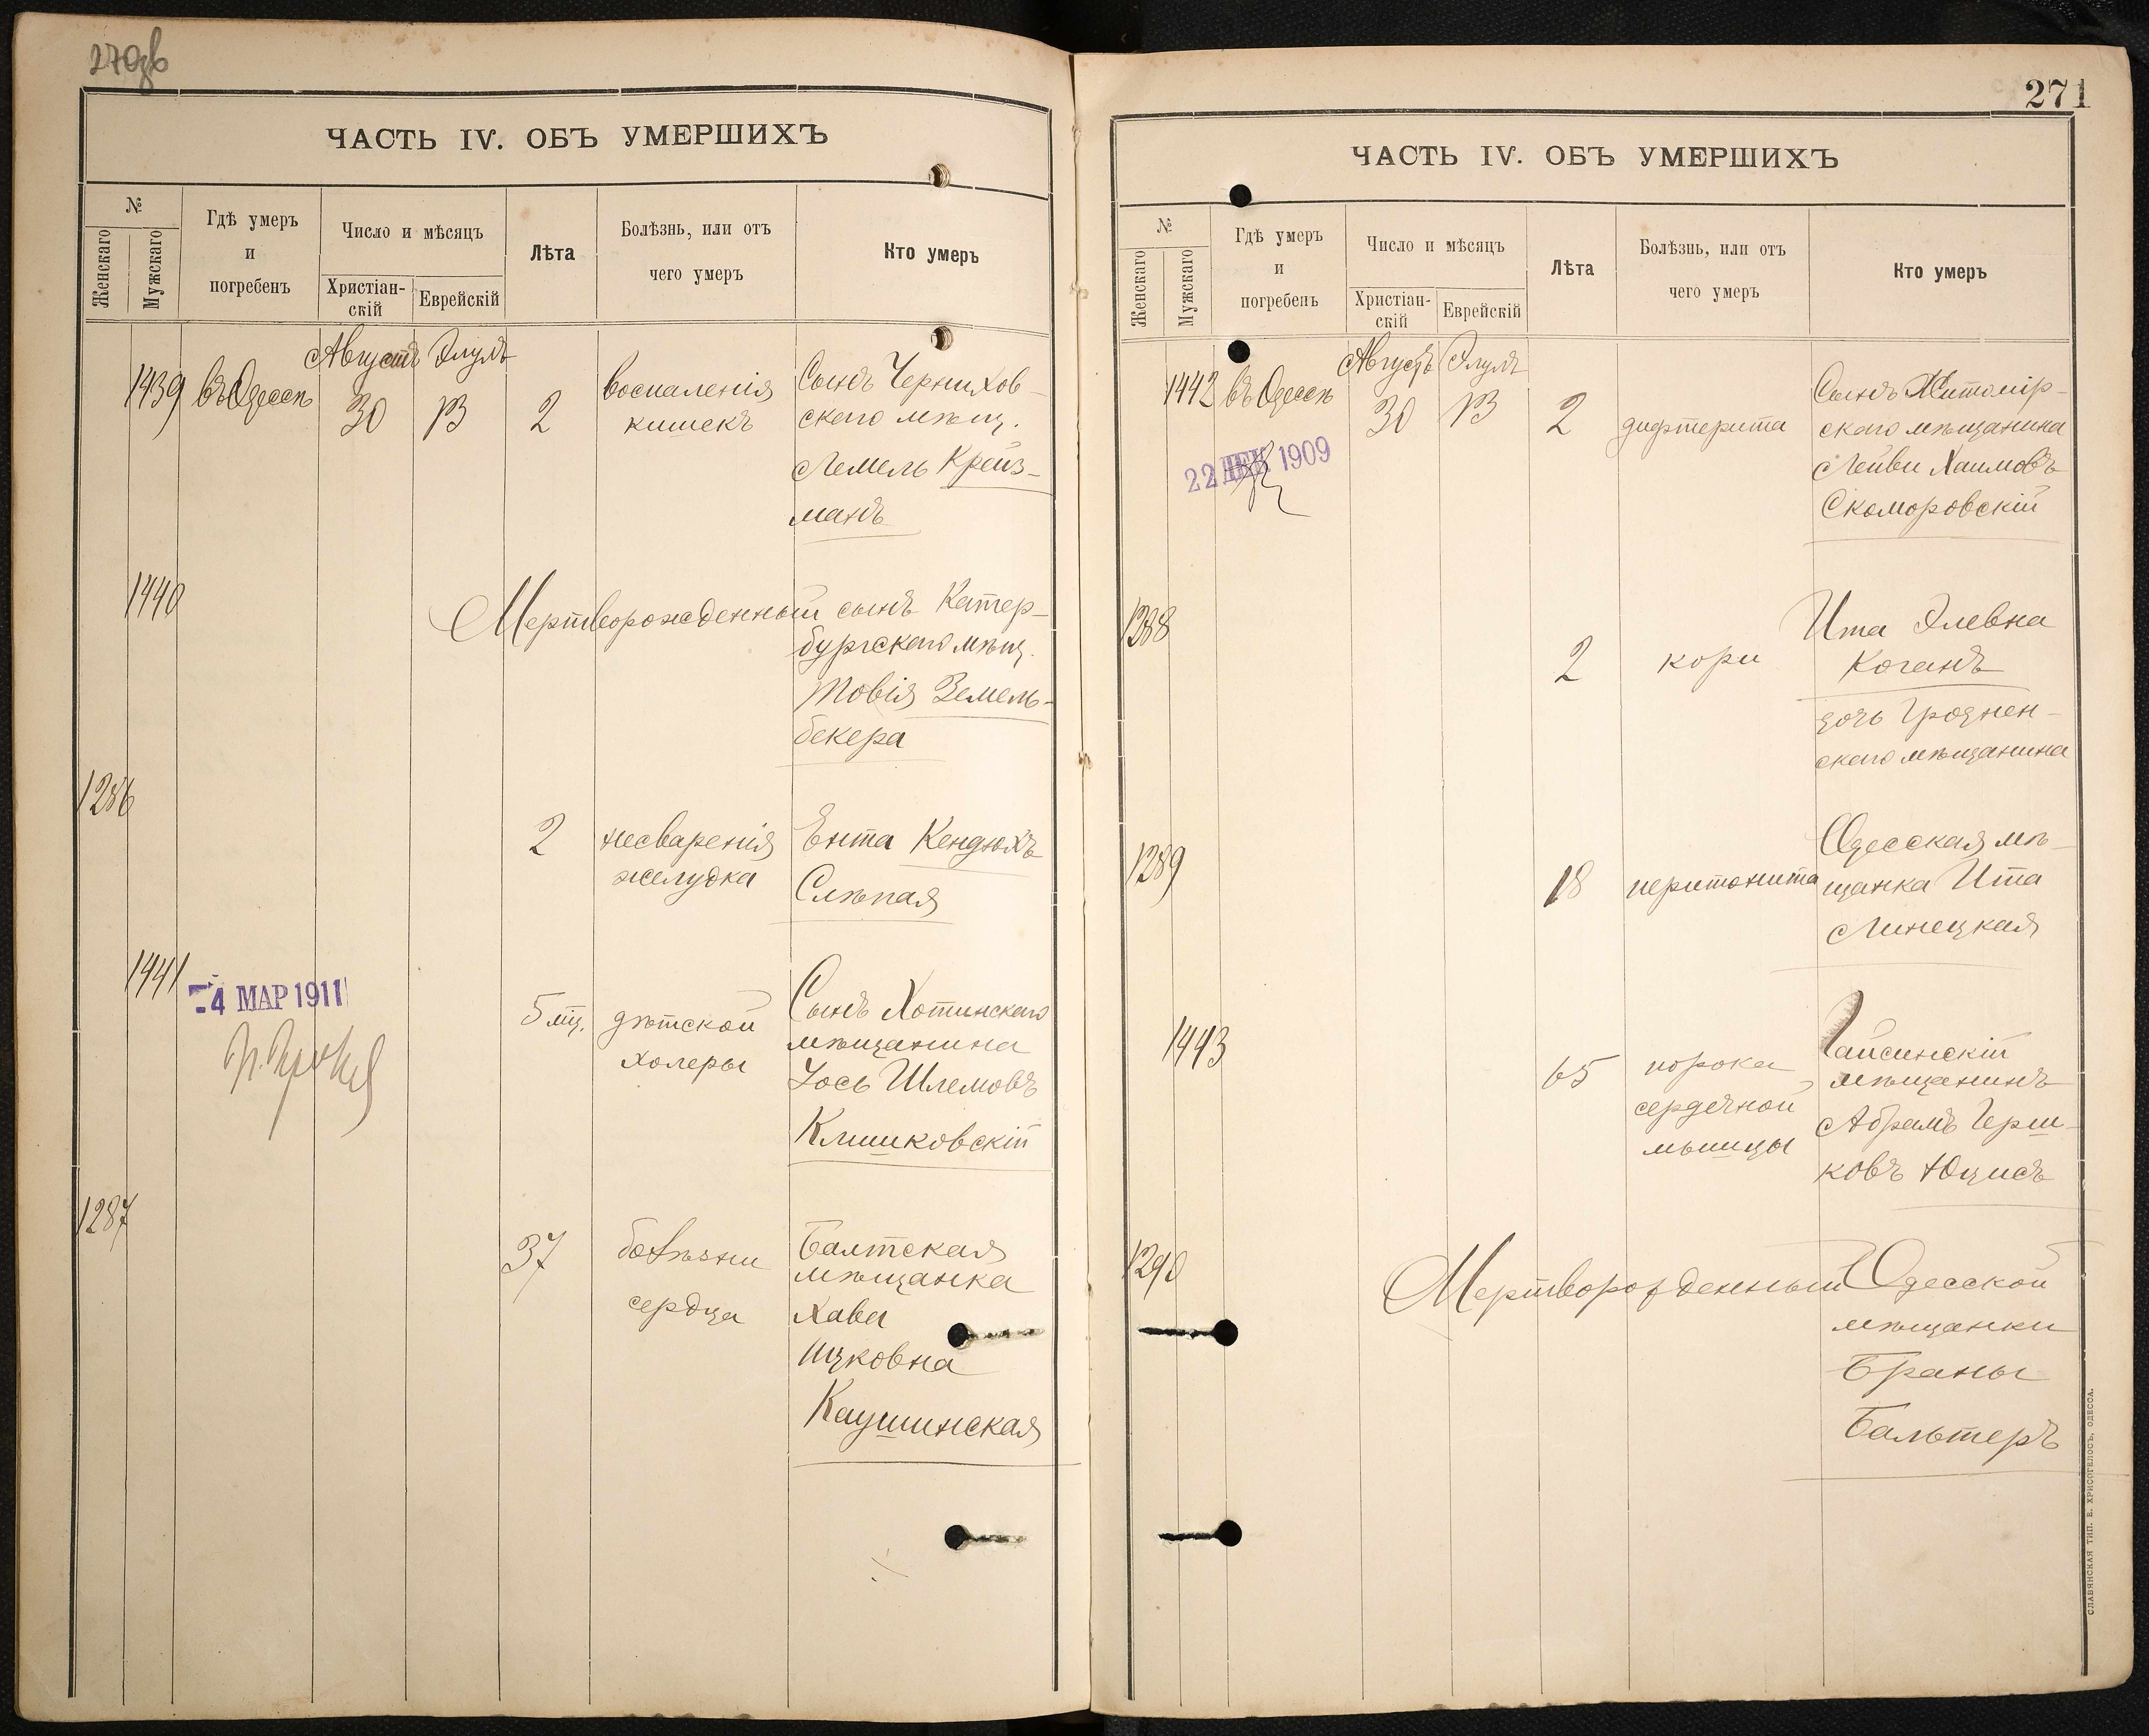 270об
ЧАСТЬ IV. ОБЪ УМЕРШИХЪ
№
Женскаго
Мужскаго
Гдѣ умеръ
и
погребенъ
Число и мѣсяцъ
Христіан-
скій
Еврейскій
Лѣта
Болѣзнь, или отъ
чего умеръ
Кто умеръ
Августъ Элулъ
1439 въ Одессѣ 30 13 2
воспаленія
кишекъ
Сынъ Чернихов-
скаго мѣщ.
Лемель Крейз-
манъ
1440
Мертворожденный сынъ Катер-
бургскаго мѣщ.
Товія Земель-
бекера
1286
2
несваренія
желудка
Ента Кендюхъ
Слѣпая
1441
-4 МАР 1911
5 мц.
дѣтской
холеры
Сынъ Хотинскаго
мѣщанина
Іось Шлемовъ
Клишковскій
1287
37
болѣзни
сердца
Балтская
мѣщанка
Хава
Ицковна
Каушинская
271
ЧАСТЬ IV. ОБЪ УМЕРШИХЪ
№
Женскаго
Мужскаго
Гдѣ умеръ
и
погребенъ
Число и мѣсяцъ
Христіан-
скій
Еврейскій
Лѣта
Болѣзнь, или отъ
чего умеръ
Кто умеръ
Августъ Элулъ
1442 въ Одессѣ 30 13 2
дифтерита
Сынъ Житомір-
скаго мѣщанина
Лейви Хаимовъ
Скоморовскій
22 ДЕК 1909
1288
2
кори
Ита Элевна
Коганъ
дочь Гроднен-
скаго мѣщанина
1289
18
перитонита
Одесская мѣ-
щанка Ита
Линецкая
1443
65
порока
сердечной
мышцы
Гайсинскій
мѣщанинъ
Абрамъ Герш-
ковъ Юцисъ
1290
Мертворожденный Одесской
мѣщанки
Браны
Бальтеръ
СЛАВЯНСКАЯ ТИП. Е. ХРИСОГЕЛОСЪ, ОДЕССА.